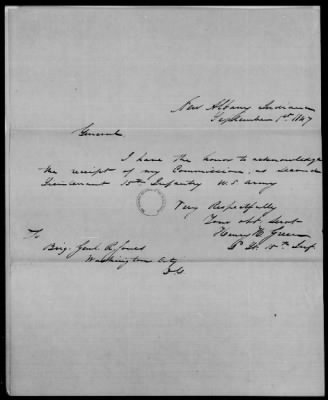 New Albany Indiana
September 1st 1847
General
I have the honor to acknowledge
the receipt of my Commission, as second
Lieutenant 15th Infantry U.S army
Very Respectfully
Your obt. Servt
Henry M Green
Lt. 15th Inf.
To
Brig. Genl. R. Jones
Washington City
D.C.